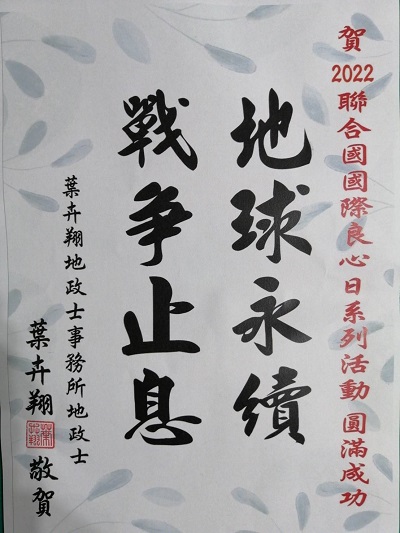 賀2022聯合國國際良心日系列活動 圓滿成功
地球永續
戰爭止息
葉卉翔地政士事務所地政士
葉卉翔 敬賀